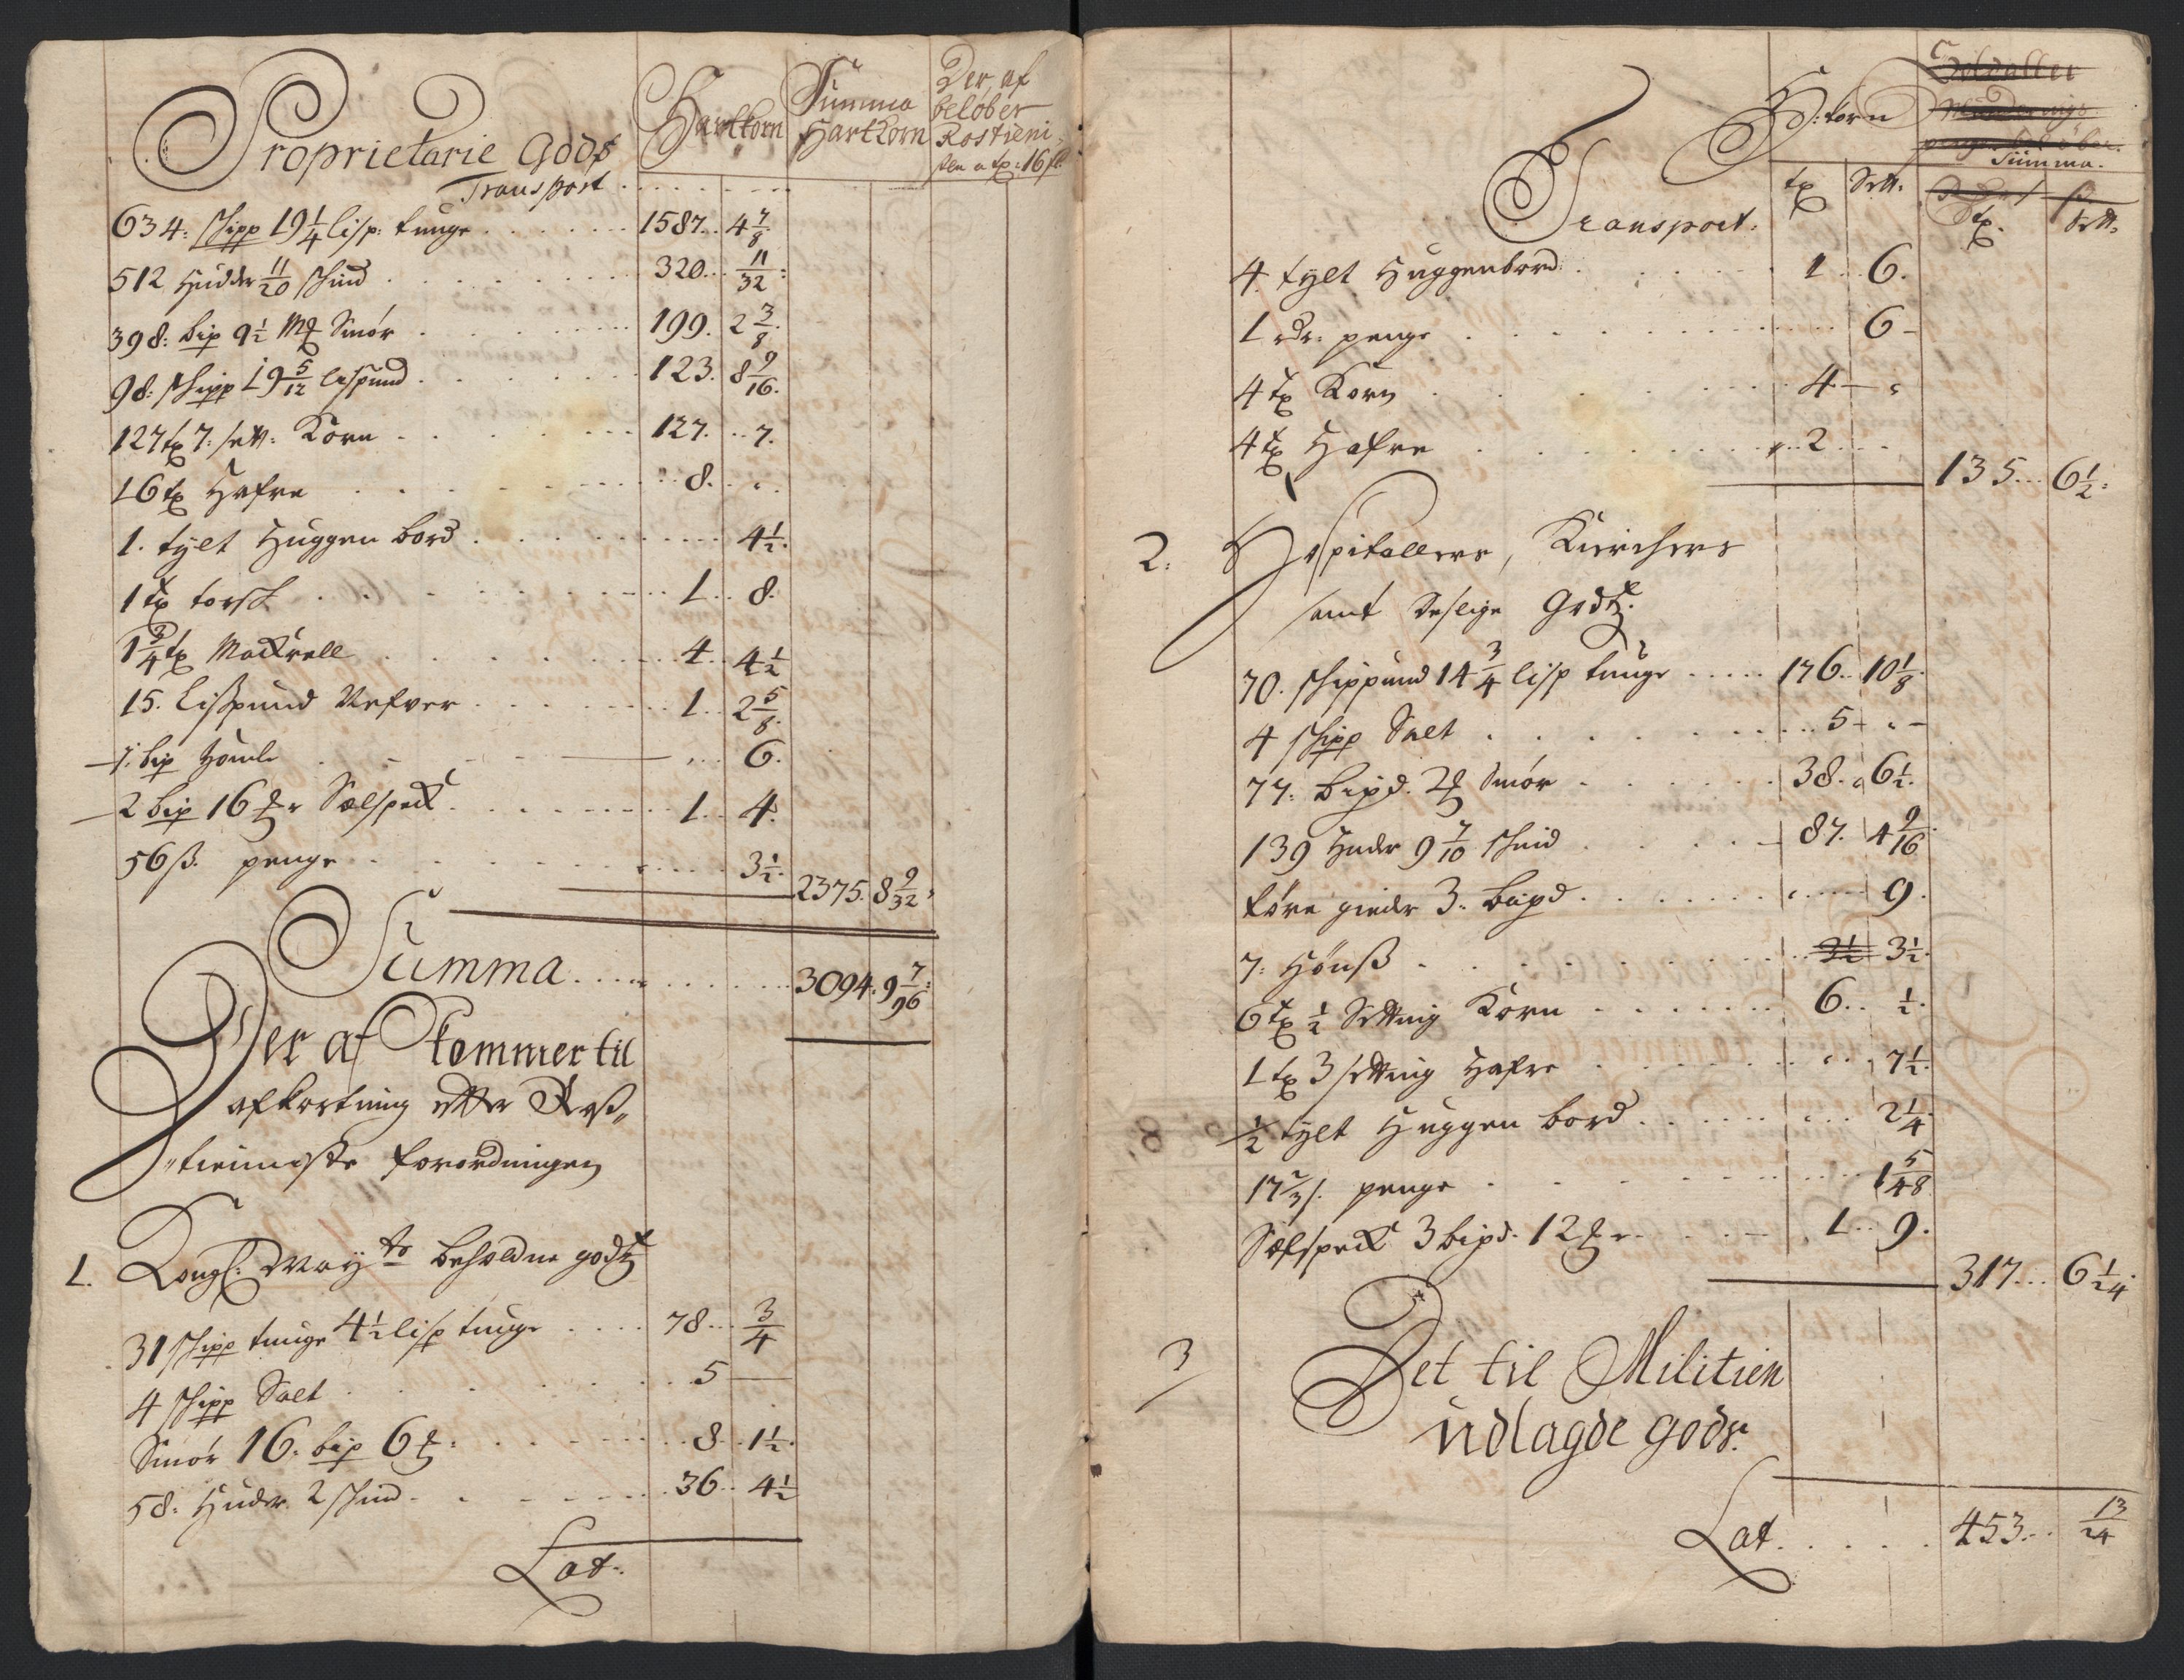 Proprietarie Godß
Transport
Hartkorn
Summa Hartkorn
Der af beløber Rostieni-
sten a tø: 16 sk
634: skipp 19 1/4 lisp: tunge 1587. 4 7/8
512 Huder 11/20 skind 320. 11/32
398: bip 9 1/2 Mk Smör 199. 2 3/8
98: skipp 19 5/12 lispund 123. 8 9/16
127 tø 7: sett: Korn 127. 7.
16 tø Hafre 8. "
1. tylt Huggen bord 4 1/2
1 tø torsk 1. 8.
1 3/4 tø Mackrell 4. 4 1/2
15. Lispund Nefver 1. 2 5/8
1. bip Homle " 6.
2 bip 16 ꝑr Sælspeck 1. 4.
56 ß. penge 3 1/2
2375. 8 9/32
Summa 3094. 9 7/96
Der af kommer til
afkortning etter Roß-
tienniste forordningen
1. Kongl: May:ts beholdne godtz
31 skipp tunge 4 1/2 lisp tunge 78. 3/4
4 skipp Salt 5 —
Smör 16. bip 6 ꝑ: 8. 1 1/2
58. Huder 2 skind 36. 4 1/2
Lat.
H:korn
Summa.
tø Sett:
tø. Sett:
Transport.
4 tylt Huggenbord 1. 6.
1 rdr: penge 6 -
4 tø Korn 4 — "
4 tø Hafre 2
135. 6 1/2
2. Hospitallers, Kirchers
samt deslige Godtz.
70. skippund 14 3/4 lisp tunge 176. 10 1/8
4 skipp Salt 5 - " -
77: bipd. 2 ꝑ Smör 38. 6 1/2
139 Huder 9 7/10 skind 87. 4 9/16
3. bipd 9.
7: Hönß 3 1/2 3 1/2
6 tø 1/2 Setting Korn 6. 1/2
1 tø 3 setting Hafre " 7 1/2
1/2 tylt Huggen bord 2 1/4
17 2/3 s. penge 1 5/48
Sælspeck 3 bipd. 12 ꝑr 1. 9.
317. 6 1/24
3 Det til Militien
udlagde gods.
Lat. 453. 13/24